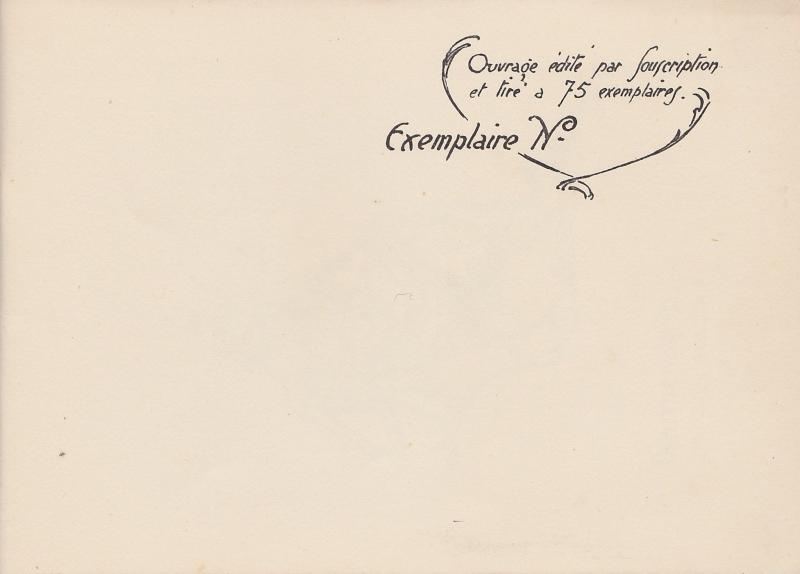 Ouvrage édité par Souscription
et tiré a 75 exemplaires.
Exemplaire Nº